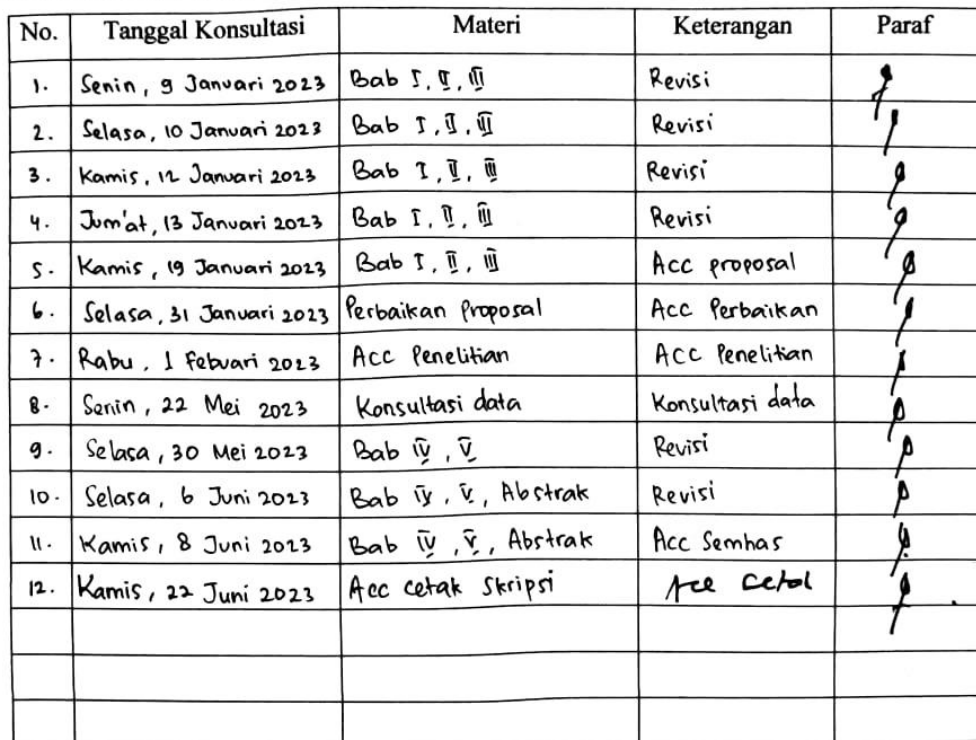 No. Tanggal Konsultasi Materi Keterangan Paraf
1. Senin, 9 Januari 2023 Bab I, II, III Revisi
2. Selasa, 10 Januari 2023 Bab I, II, III Revisi
3. Kamis, 12 Januari 2023 Bab I, II, III Revisi
4. Jum'at, 13 Januari 2023 Bab I, II, III Revisi
5. Kamis, 19 Januari 2023 Bab I, II, III Acc proposal
6. Selasa, 31 Januari 2023 Perbaikan Proposal Acc Perbaikan
7. Rabu, 1 Febuari 2023 Acc Penelitian Acc Penelitian
8. Senin, 22 Mei 2023 Konsultasi data Konsultasi data
9. Selasa, 30 Mei 2023 Bab IV, V Revisi
10. Selasa, 6 Juni 2023 Bab IV, V, Abstrak Revisi
11. Kamis, 8 Juni 2023 Bab IV, V, Abstrak Acc Semhas
12. Kamis, 22 Juni 2023 Acc cetak Skripsi Acc